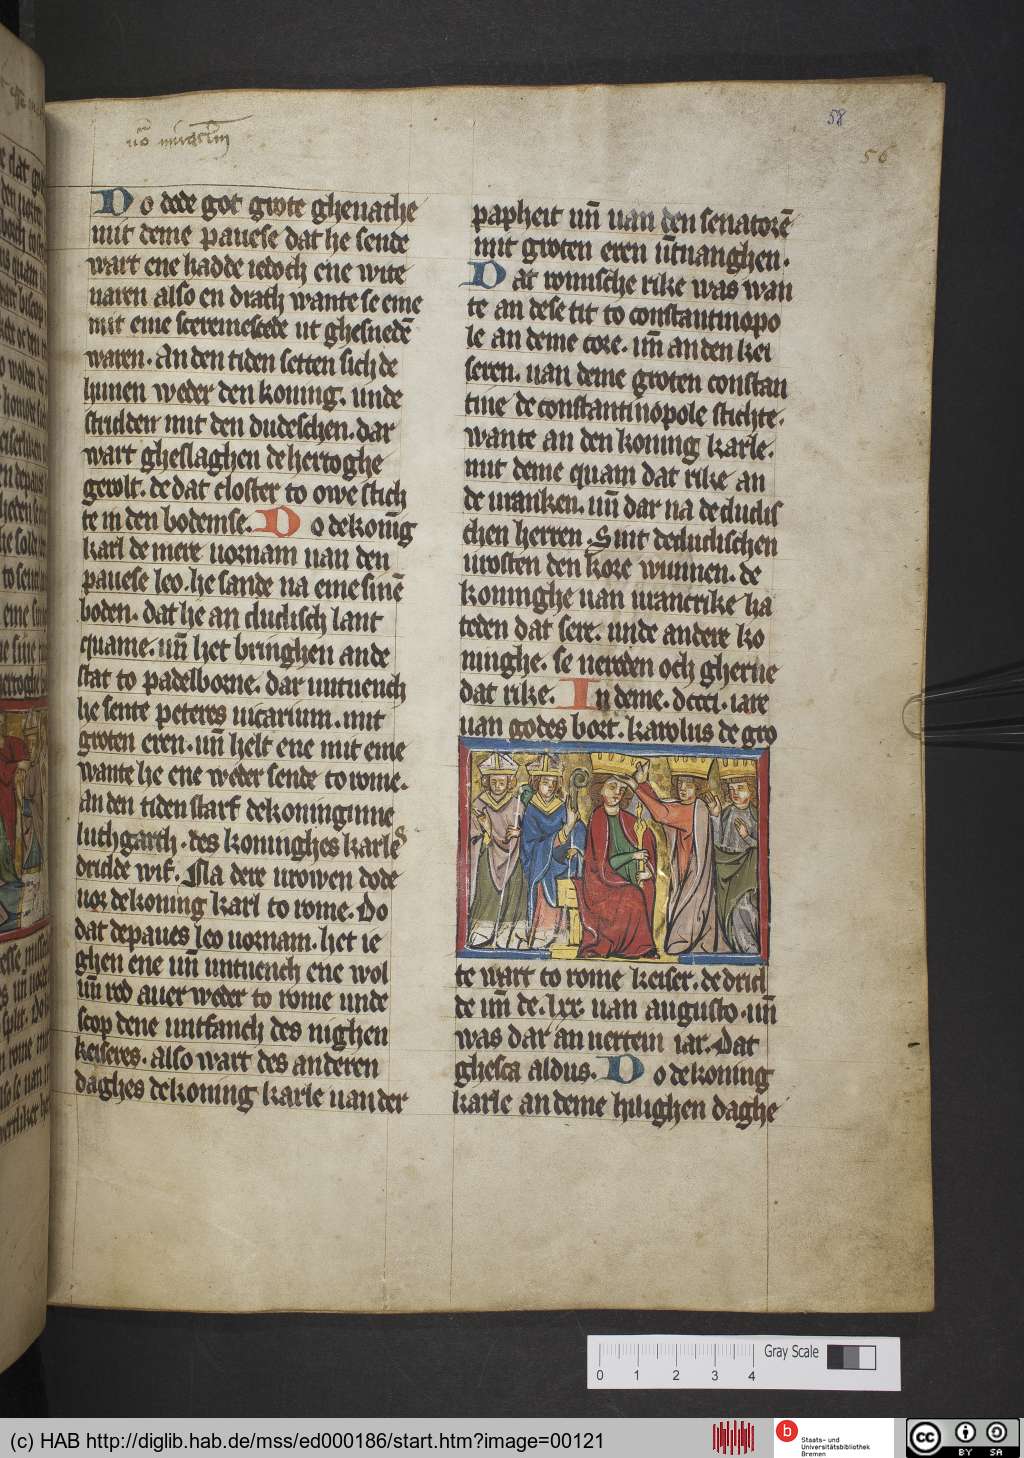 58
56
Do dede got grote ghenathe
mit deme pauese dat he sende
wart ene hadde iedoch ene wite
naren also en drath wante se eme
mit eme scermestede ut ghesnedē
waren. An den tiden setten sich de
hunen weder den koning. unde
striddeir mit den dudeschen. dar
wart gheslaghen de hertoghe
gerolt. de dat closter to owe stich
te in den bodemse. Do de konīg
karl de mere uornam uan den
pauese leo. he sande na eme sinē
boden. dat he an dudisch lant
quame. uñ het bringhen ande
stat to padelborne. dar untuench
he sente peteres uicarium. mit
groten eren. uñ helt ene mit eme
wante he ene weder sende to rome.
an den tiden starf de koninginne
luthgarth. des koninghes karles
dridde wif. Na dere urowen dode
uor de koning karl to rome. Do
dat de paues leo uornam. het ie
ghen ene uñ untuench ene wol
uñ red auer weder to rome unde
scop dene untfanch des nighen
keiseres. also wart des anderen
daghes de koning karle uan der
papheit uñ uan den senatorē
mit groten eren ūtuanghen.
Dat romische rike was wan
te an dese tit to constantinopo
le an deme core. uñ an den kei
seren. uan deme groten constan
tine de constantinopole stichte.
wante an den koning karle.
mit deme quam dat rike an
de uranken. uñ dar na de dudis
chen herren. Sint de dudischen
uorsten den kore wunnen. de
koninghe uan urancrike ha
teden dat sere. unde andere ko
ninghe. se nereden och gherne
dat rike. In deme. dccci. iare
uan godes bort. karolus de gro
te wart to rome keiser. de drid
de uñ de. lxx. uan augusto. uñ
was dar an uertein iar. Dat
ghesca aldus. Do de koning
karle an deme hilighen daghe
Gray Scale
0 1 2 3 4
(c) HAB http://diglib.hab.de/mss/ed000186/start.htm?image=00121
b
Staats- und
Universitätsbibliothek
Bremen
cc
BY SA